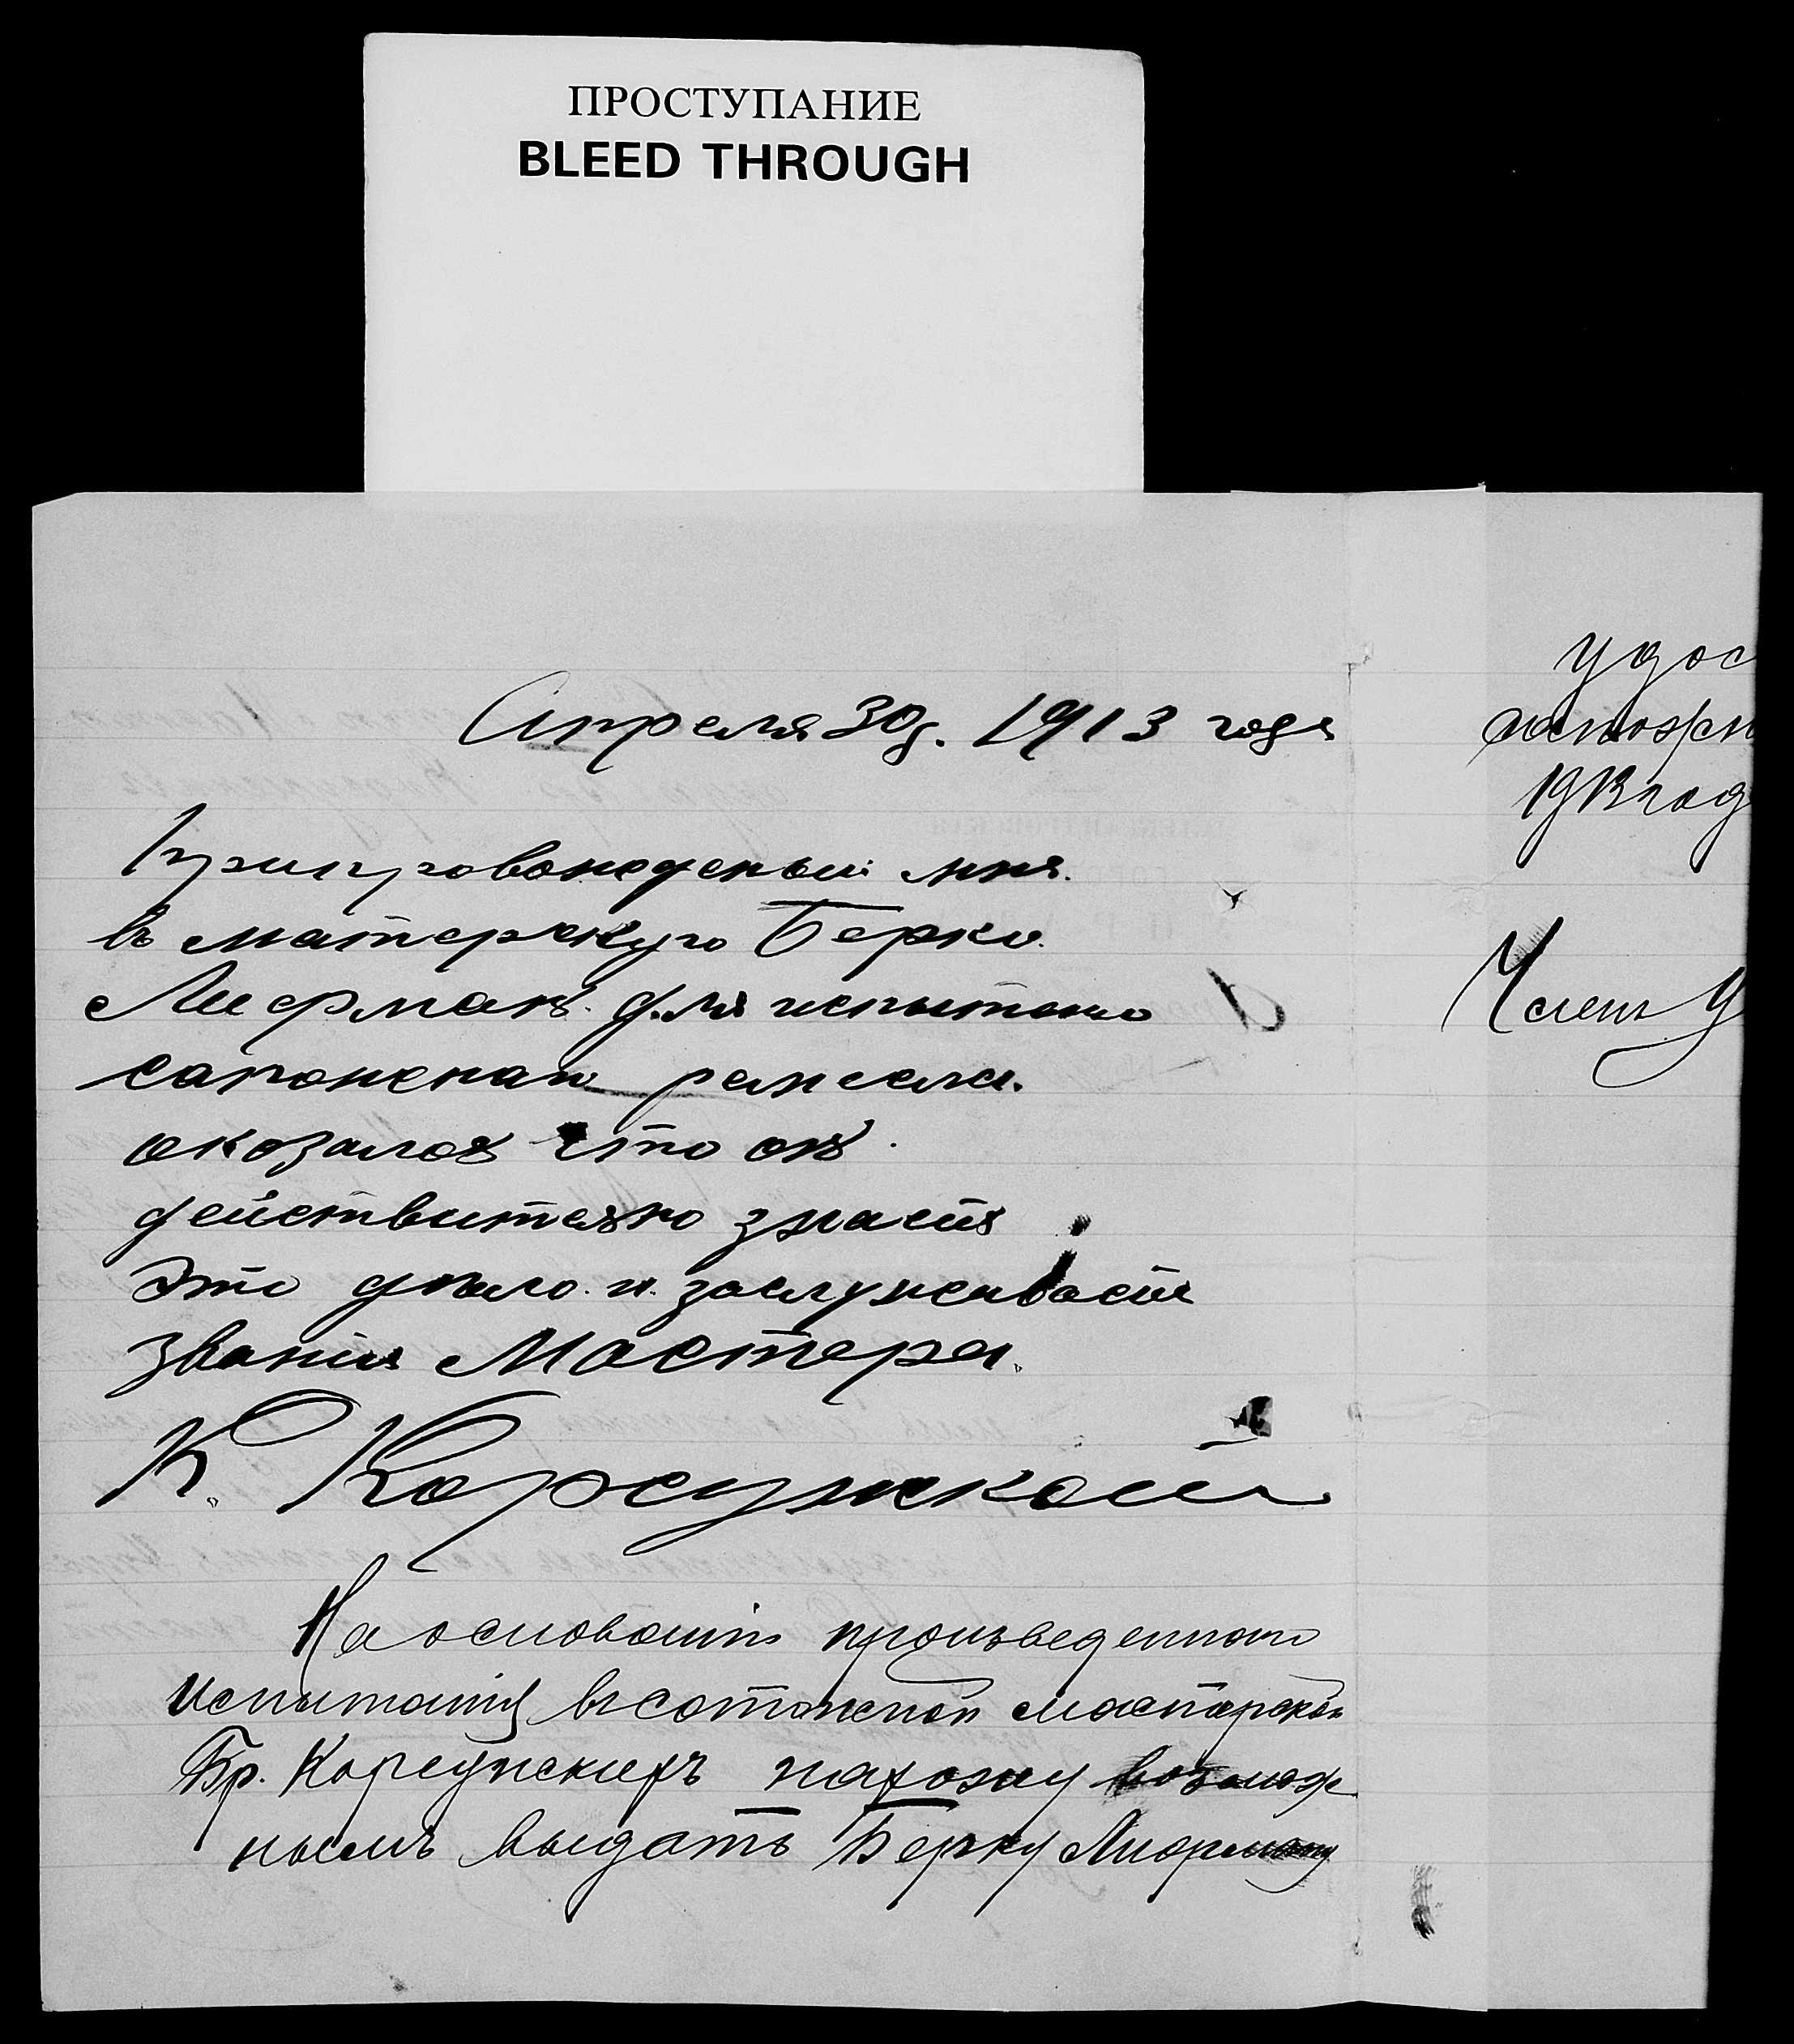 ПРОСТУПАНИЕ
BLEED THROUGH
Апреля 30 д. 1913 года
Припровожденый мнѣ
въ матерскую Берко
Лиерманъ для испытано
сапожнаго ремесла
оказалося что онъ
действительно знаетъ
Это дѣло и заслуживаетъ
звания Мастера.
К. Корсунской
На основаніи произведеннаго
испытанія въ сапожной мастерской
Бр. Корсунскихъ нахожу возмож
нымъ выдать Берку Лиорману
удос
1913 год
Членъ У